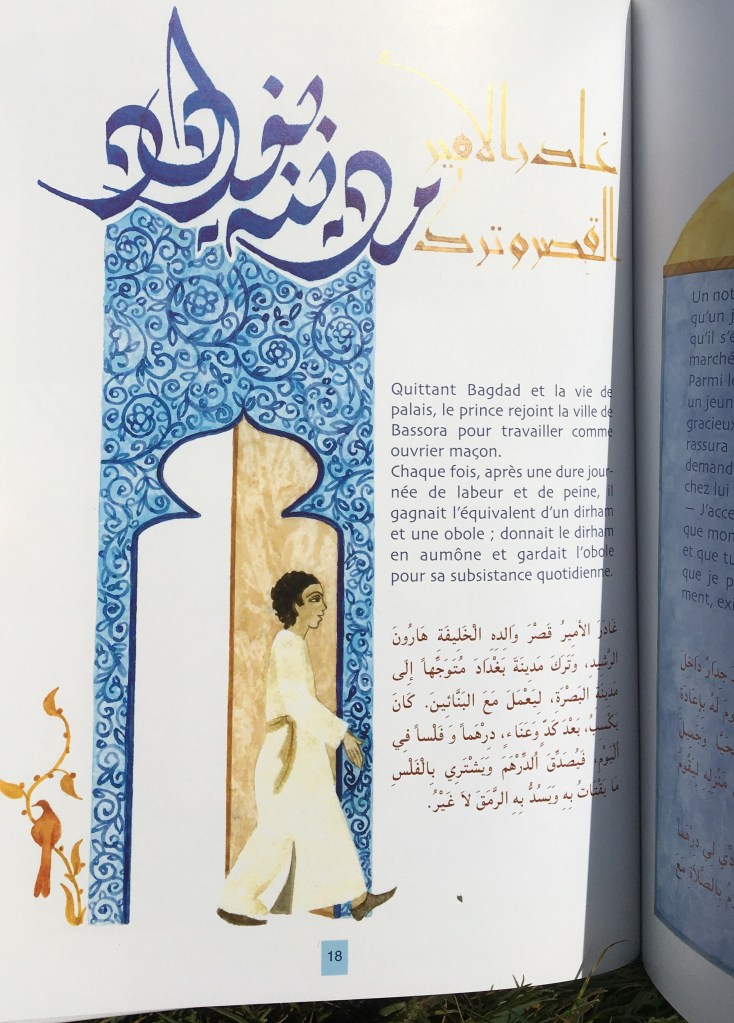 غادر الامير
القصر وترك
مدينة بغداد
Quittant Bagdad et la vie de
palais, le prince rejoint la ville de
Bassora pour travailler comme
ouvrier maçon.
Chaque fois, après une dure jour-
née de labeur et de peine, il
gagnait l'équivalent d'un dirham
et une obole ; donnait le dirham
en aumône et gardait l'obole
pour sa subsistance quotidienne.
غَادَرَ الأَمِيرُ قَصْرَ وَالِدِهِ الْخَلِيفَةِ هَارُونَ
الرَّشِيدِ، وَتَرَكَ مَدِينَةَ بَغْدَادَ مُتَوَجِّهاً إِلَى
مَدِينَةِ الْبَصْرَةِ، لِيَعْمَلَ مَعَ الْبَنَّائِينَ. كَانَ
يَكْسِبُ، بَعْدَ كَدٍّ وَعَنَاءٍ، دِرْهَماً وَ فَلْساً فِي
الْيَوْمِ، فَيُصَدِّقَ الدِّرْهَمَ وَيَشْتَرِي بِالْفَلْسِ
مَا يَقْتَاتُ بِهِ وَيَسُدُّ بِهِ الرَّمَقَ لاَ غَيْرُ.
18
Un not
qu'un j
qu'il s'é
marché
Parmi le
un jeun
gracieux
rassura
demand
chez lui
– J'acce
que mon
et que tu
que je p
ment, exi
جِدَارُ دَاخِلَ
لَهُ بِإِعَادَةِ
وَجَمِيلَ
مَنْزِلِهِ لِيُقَوِّمَ
لِي دِرْهَماً
بِالصَّلاَةِ مَعَ